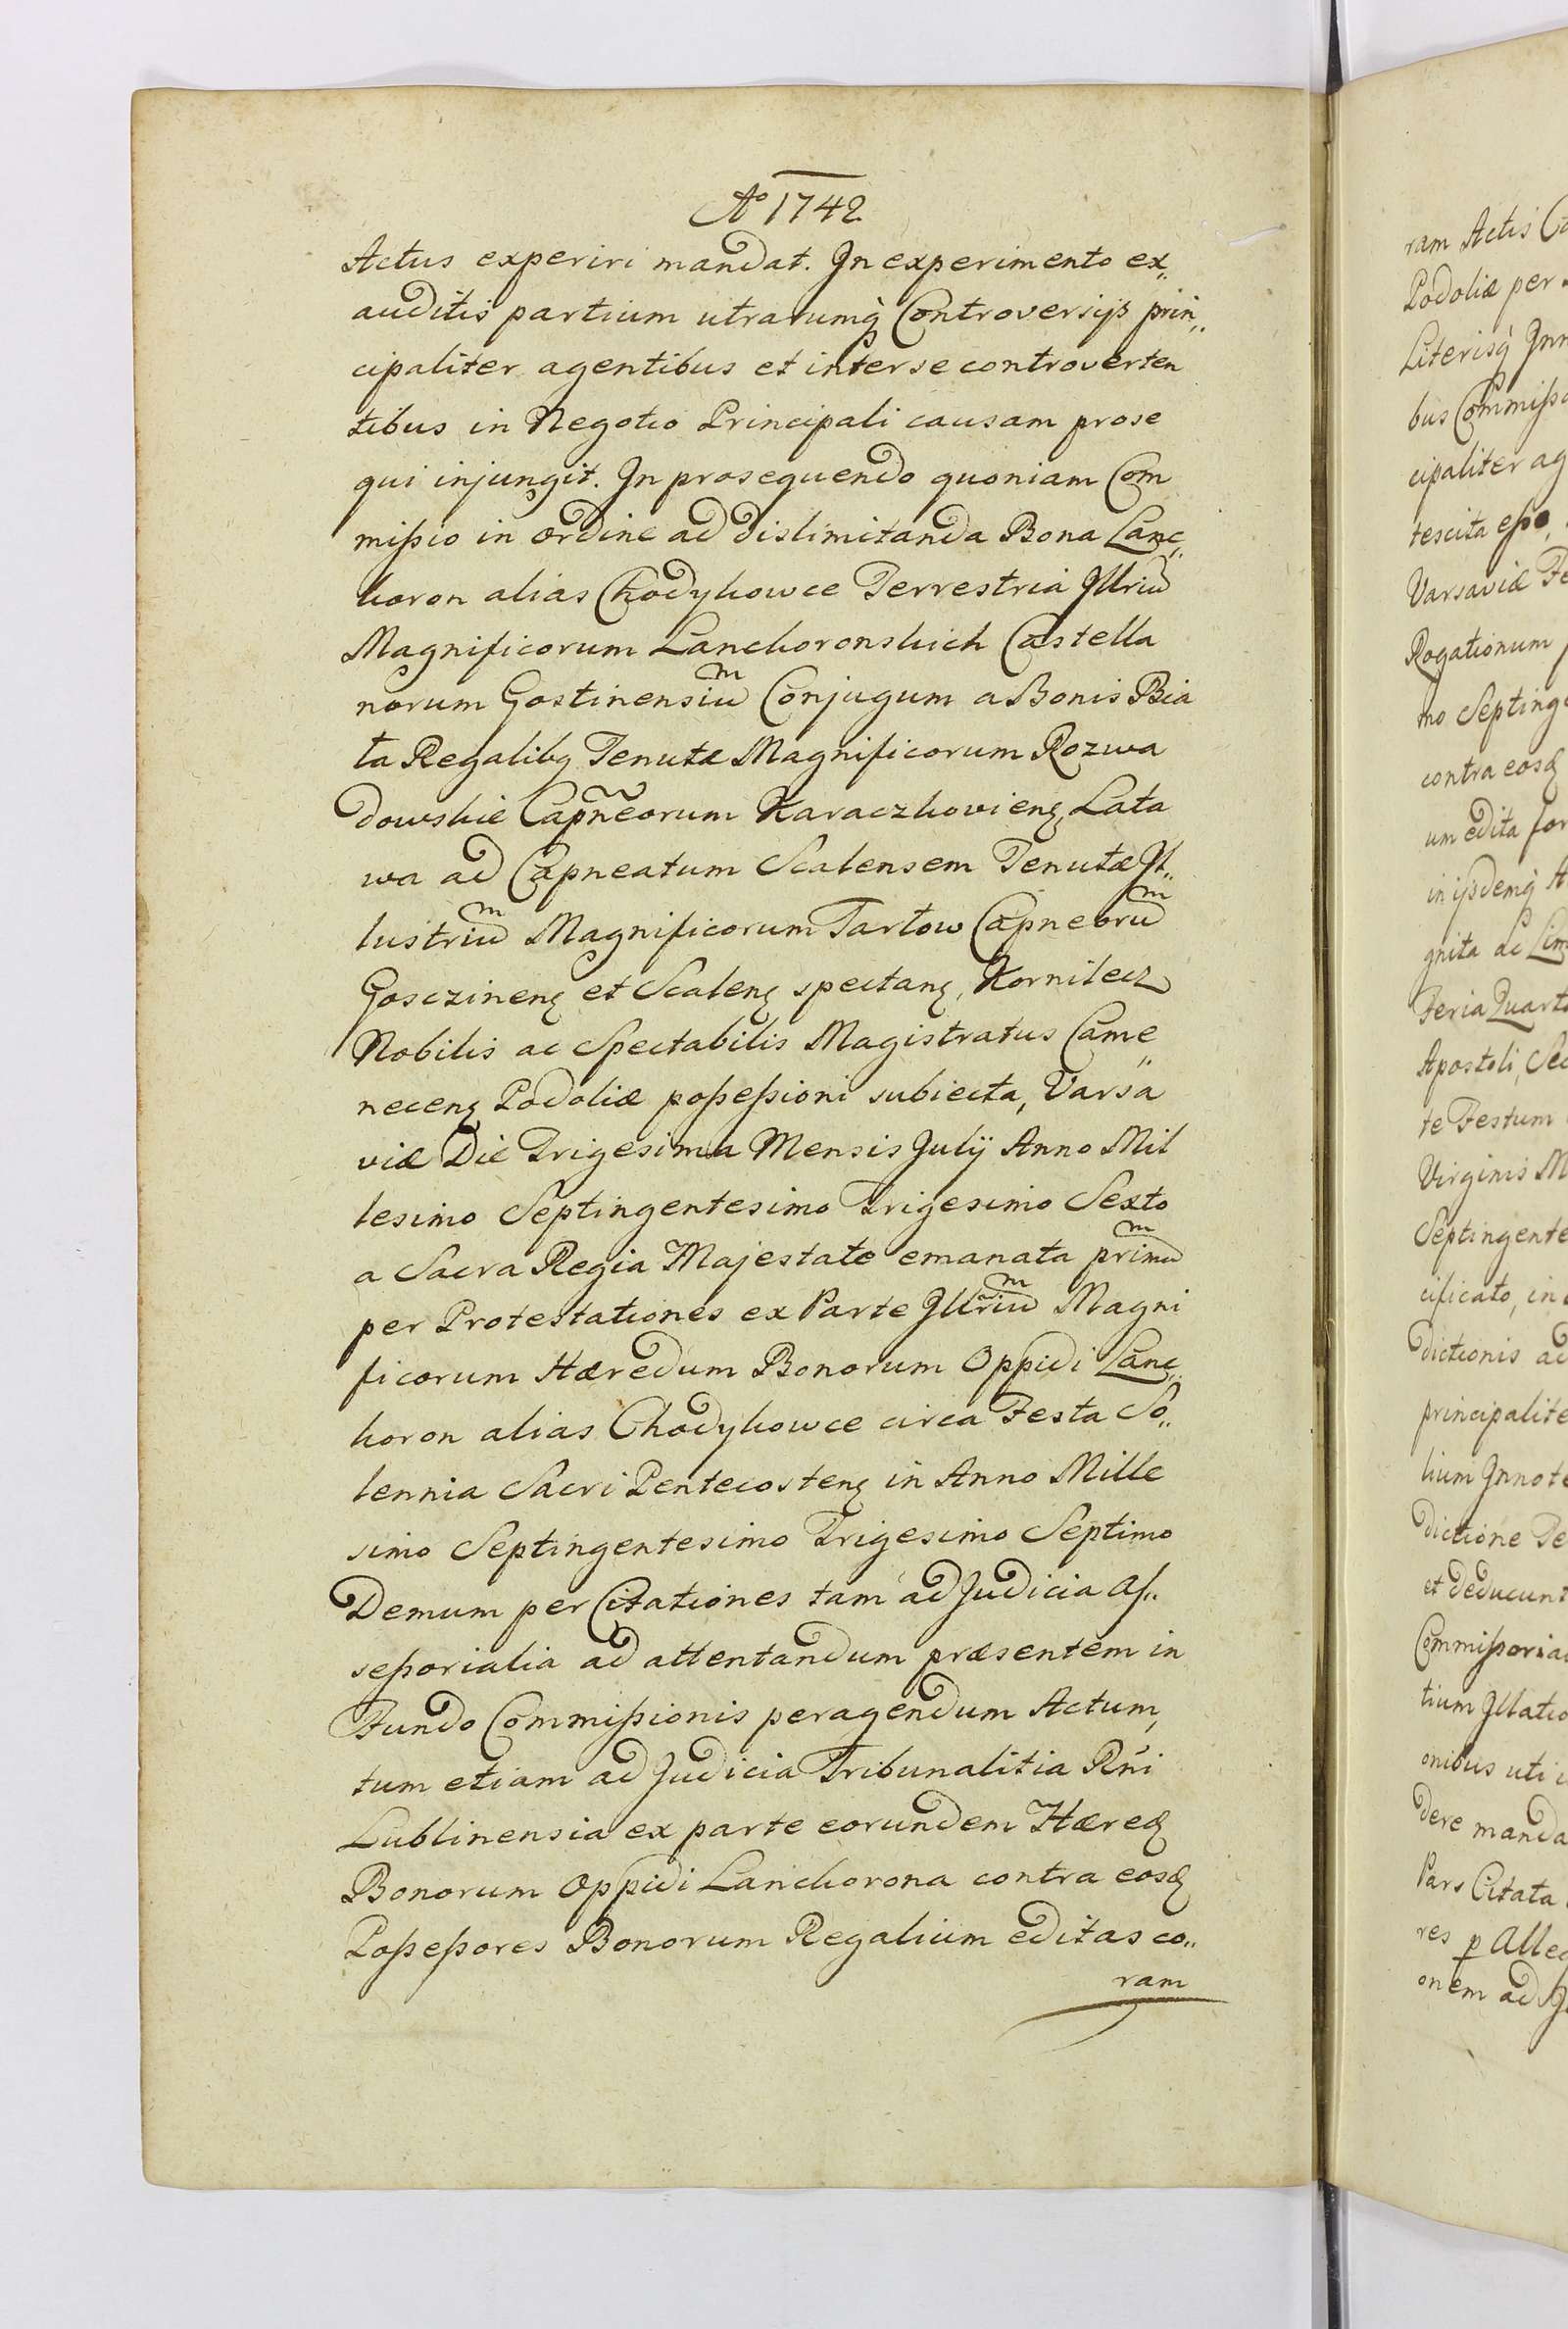 Aº 1742
Actus experiri mandat. In experimento ex„
auditis partium utrarumq̀ Controversijs prin„
cipaliter agentibus et inter se controverten
tibus in Negotio Principali causam prose
qui injungit. In prosequendo quoniam Com
mißio in ordine ad dislimitanda Bona Lanc„
koron alias Chodykowce Terrestria Illriũ
Magnificorum Lanckoronskich Castella
norum Gostinensiuͫ Conjugum a Bonis Bia
ta Regalibꝫ Tenutæ Magnificorum Rozwa
dowskie Capñeorum Karaczkovienꝫ, Lata
wa ad Capneatum Scalensem Tenutæ Il„
lustriuͫ Magnificorum Tarłow Capneoruͫ
Gosczinenꝫ et Scalenꝫ spectanꝫ, Kornilecz
Nobilis ac Spectabilis Magistratus Came„
necenꝫ Podoliæ poßeßioni subiecta, Varsa
viæ Die Trigesima Mensis Julij Anno Mil
lesimo Septingentesimo Trigesimo Sexto
a Sacra Regia Majestate emanata primuͫ
per Protestationes ex Parte Illr̃iuͫ Magni
ficorum Hæredum Bonorum Oppidi Lanc„
koron alias Chodykowce circa Festa So„
lennia Sacri Pentecostenꝫ in Anno Mille
simo Septingentesimo Trigesimo Septimo
Demum per Citationes tam ad Judicia Aſ„
seßorialia ad attentandum præsentem in
Fundo Commißionis peragendum Actum,
tum etiam ad Judicia Tribunalitia Rñi
Lublinensia ex parte eorundem Hæredꝫ
Bonorum Oppidi Lanckorona contra eosdꝫ
Poßeßores Bonorum Regalium editas co„
ram
ram Actis
Podoliæ per
Literisq̀
bus
cipaliter
tescita eße,
Varsaviæ
Rogationum
mo
contra eosdꝫ
um edita
in ijsdemq̀
gnita ac
Feria
Apostoli,
te Festum
Virginis
cificato, in
dictionis
lium
dictione
et deducunt
onibus uti
dere
Pars Citata
res
onem ad